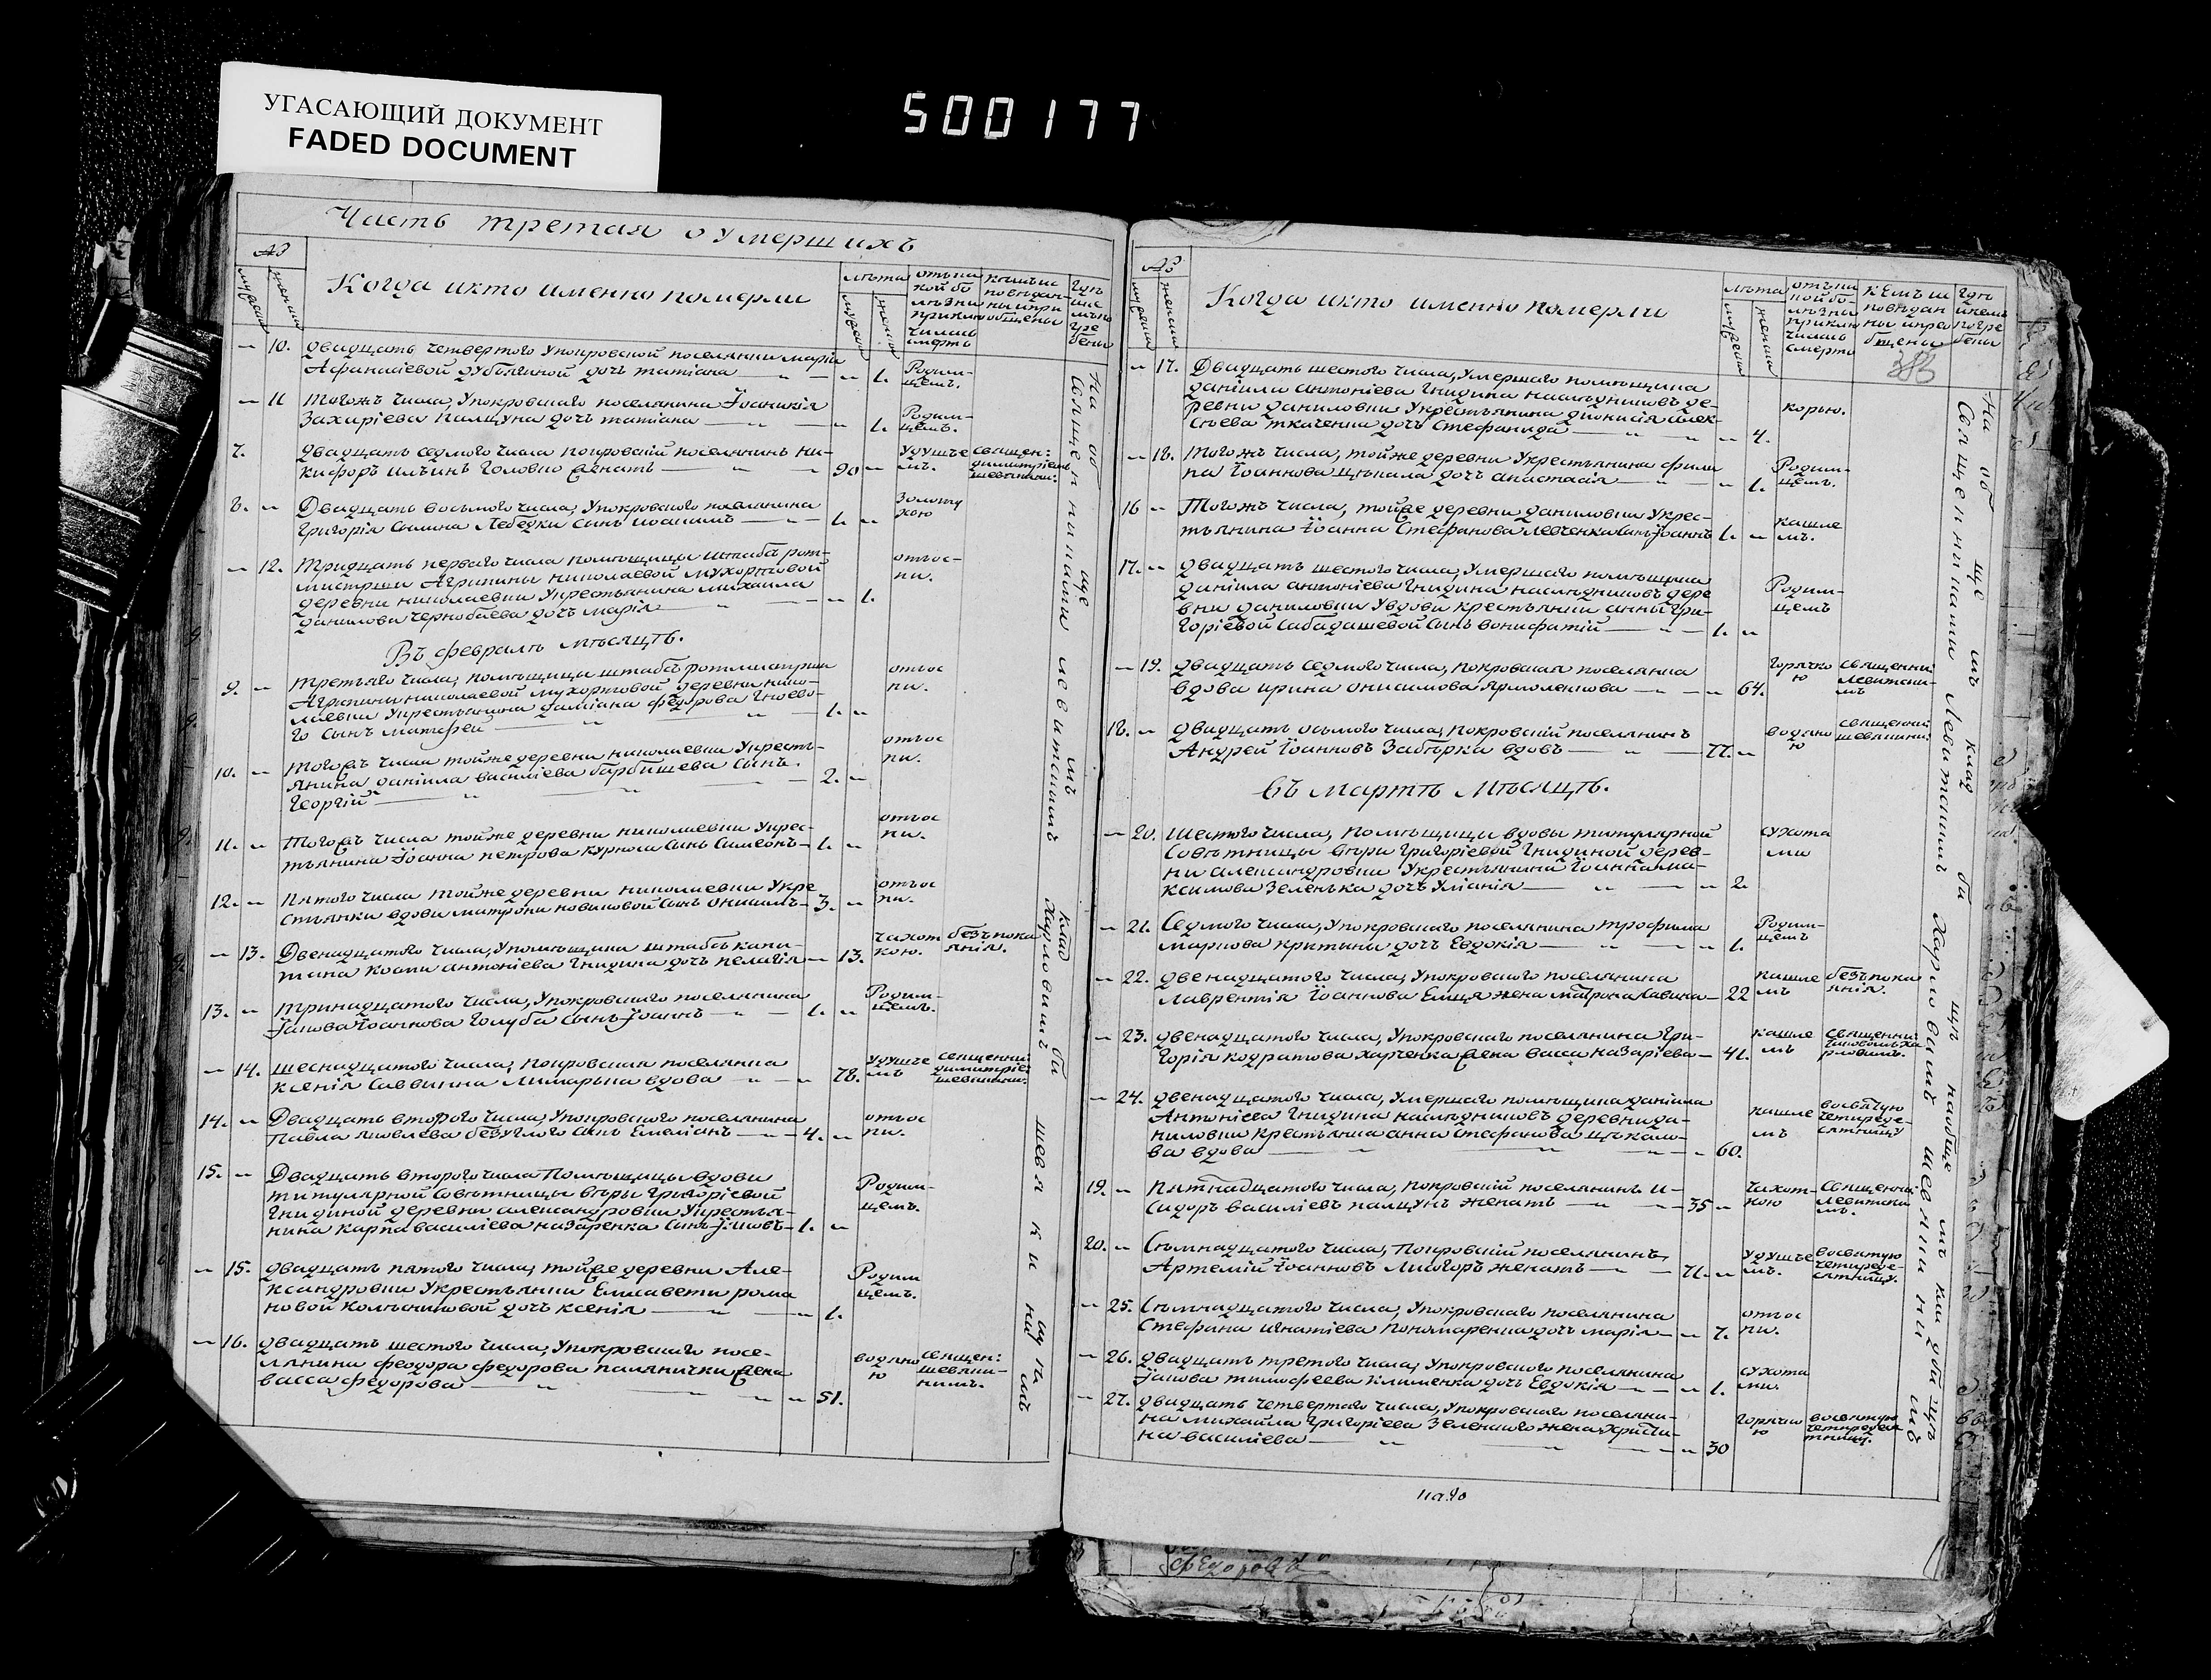 УГАСАЮЩИЙ ДОКУМЕНТ
FADED DOCUMENT
500177
Часть третая о умершихъ
№
Когда икто именно померли
лѣта
отъ ка
кой бо
лѣзни
приклю
чилась
смерть
10. двадцать четвертого Упокровской поселянки маріи
Афанасіевой дубыниной дочь татіана 1. Родим-
щемъ.
11 Тогожъ числа, Упокровскаго поселянина Іоаникія
Захаріева Палцуна дочь татіана 1. Родим-
щемъ.
7. двадцать седмого числа покровскій поселянинъ Ни-
кифоръ ильинъ Головко женатъ 90 Удушье
мъ. священ:
димитріемъ
шевякинымъ.
8. Двадцать восьмого числа, Упокровского поселянина
Григорія Савина Лебедки сынъ иоакимъ 1. Золоту
хою
12. Тридцать первого числа помѣщицы штабсъ рот-
мистрши Агрипины николаевой Мухортовой
деревни николаевки Укрестьянина михаила
данилова чернобаева дочь марія 1. отъос-
пи.
Въ февралѣ мѣсяцѣ.
9. третьяго числа, помѣщицы штабсъ ротмистрши
Агрипины николаевой мухортовой деревни нико-
лаевки Укрестьянина даміана федорова Гноево-
го сынъ матфей 1. отъос
пи.
10. тогожъ числа тойже деревни николаевки Укресть-
янина даніила василіева барбашева сынъ
Георгій 2. отъос
пи.
11. Тогожъ числа тойже деревни николаевки Укрес-
тьянина Іоанна петрова курноса сынъ Симеонъ 1. отъос
пи.
12. Пятого числа тойже деревни николаевки Укре
стьянки вдови матрони новиковой сынъ онисимъ 3. отъос
пи.
13. Двенадцатого числа, Упомѣщика штабсъ капи-
тана Козми антоніева Гнидина дочь пелагія 13. чахот
кою. безъ пока
янія.
13. тринадцатого числа, Упокровскаго поселянина
Іакова Іоаннова Голуба сынъ Іоаннъ 1. Родим-
щемъ.
14. шеснадцатого числа, покровская поселянка
ксенія Саввина Лимарьна вдова 78. Удушье
мъ священни:
димитріе:
шевякины:
14. Двадцать второго числа, Упокровского поселянина
Павла яковлева безуглого сынъ Емеліанъ 4. отъос
пи.
15. Двадцать второго числа Помѣщицы вдови
титулярной совѣтницы вѣры Григоріевой
Гнидиной деревни александровки Укрестья-
нина карпа василіева назаренка сынъ Іаковъ 1. Родим-
щемъ.
15. двадцать пятого числа, тойже деревни Але-
ксандровки Укрестьянки Елисавети рома
новой колѣсниковой дочь ксенія 1. Родим
щемъ.
16. двадцать шестого числа, Упокровскаго посе-
лянина феодора федорова палянички жена
васса федорова 51. водяно
ю священ:
шевяки-
нимъ.
№
Когда икто именно померли
лѣта
отъ ка
кой бо-
лѣзни
приклю
чилась
смерть
383
17. Двадцать шестого числа, Умершаго помѣщика
даніила антоніева Гнидина наслѣдниковъ де-
ревни даниловки Укрестьянина діонисія алек-
сѣева ткаченка дочь Стефанида 4. корью.
18. Тогожъ числа, тойже деревни Укрестьянина фили
па Іоаннова цѣпала дочь анастасія 1. Родим-
щемъ.
16 Тогожъ числа, тойже деревни даниловки Укрес-
тьянина Іоанна Стефанова Левченка сынъ Іоаннъ 1. кашле
мъ.
17. двадцать шестого числа, Умершаго помѣщика
даніила антоніева Гнидина наслѣдниковъ дере
вни даниловки Увдови крестьянки анны Гри-
горіевой Сабадашевой сынъ вонифатій 1. Родим-
щемъ
19. двадцать седмого числа, покровская поселянка
вдова ирина онисимова Ярмоленкова 64. Горячко
ю священни
Левитски-
мъ
18. двадцать осьмого числа, покровскій поселянинъ
Андрей Іоанновъ Забѣрка вдовъ 77. водяно
ю священни
шевякини:
Въ мартѣ мѣсяцѣ.
20. шестого числа, помѣщици вдовы титулярной
совѣтницы вѣри Григоріевой Гнидиной дерев-
ни александровки Укрестьянина Іоанна ма-
ксимова Зеленька дочь Уліанія 2. сухота
ми
21. Седмого числа, Упокровского поселянина трофима
маркова критини дочь Евдокія 1. Родим-
щемъ
22. двенадцатого числа, Упокровского поселянина
Лаврентія Іоаннова Емця жена матрона Савина 22 кашле
мъ безъ пока
янія.
23. двенадцатого числа, Упокровскаго поселянина Гри-
горія кодратова харченка жена васса назаріева 41. кашле
мъ священни:
24. двенадцатого числа, Умершаго помѣщика даніила
Антоніева Гнидина наслѣдниковъ деревни да-
ниловки крестьянка анна Стефанова цѣпало-
ва вдова 60. кашле
мъ восвятую
четиреде-
сятницу
19. Пятнадцатого числа, покровскій поселянинъ и-
сидоръ василіевъ палцунъ женатъ 35 чахот-
кою священни
левитски
мъ.
20. Сѣмнадцатого числа, покровскій поселянинъ
Артемій Іоанновъ Лисогоръ женатъ 71. Удушье
мъ. восвятую
четиреде-
сятницу.
25. Сѣмнадцатого числа, Упокровскаго поселянина
Стефана игнатіева пономаренка дочь марія 7. отъос
пи.
26. двадцать третого числа, Упокровского поселянина
Іакова тимофеева клименка дочь Евдокія 1. сухота
ми.
27. двадцать четвертого числа, Упокровскаго поселяни-
на михаила Григоріева Зеленского жена Христи-
на василіева 30 горячко
ю восвятую
четиредеся
тницу.
федоровъ